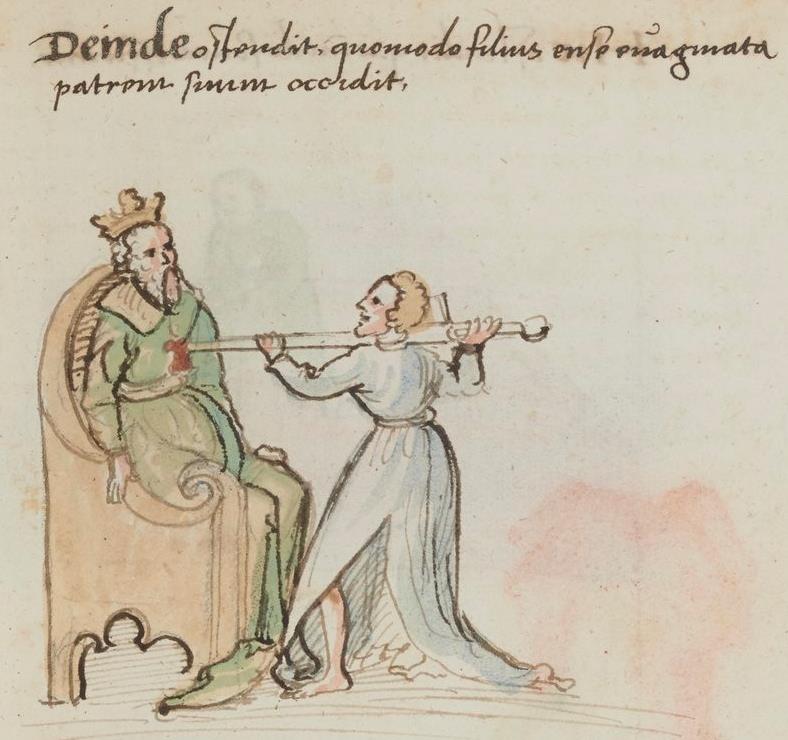 Deinde ostendit, quomodo filius ense evaginata
patrem suum occidit,